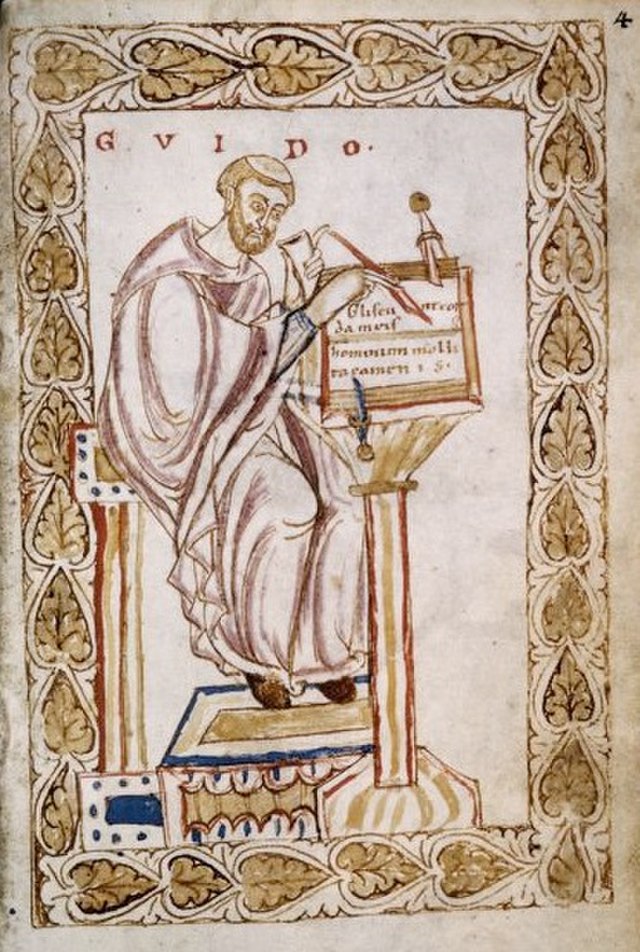 4
GVIDO.
Gliscu nt cor
da meis
hominum molli
ta camen i s.